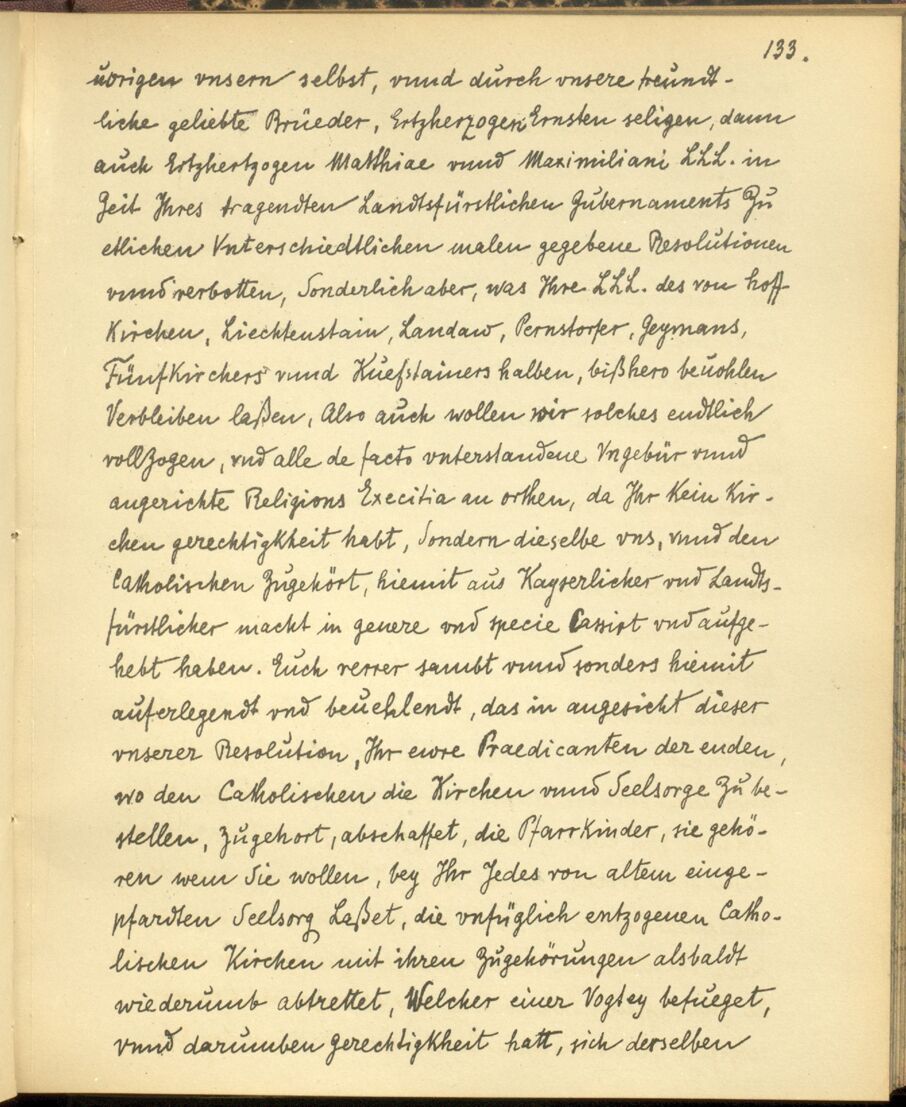 133.
übrigen vnsern selbst, vnnd durch vnsere freundt-
liche geliebte Brüeder, Ertzherzogen Ernsten seligen, dann
auch Ertzhertzogen Matthiae vnnd Maximiliani LLL. in
Zeit Ihres tragendten Landtsfürstlichen Gubernaments Zu
etlichen Vnterschiedtlichen malen gegebene Resolutionen
vnnd verbotten, Sonderlich aber, was Ihre LLL. des von Hoff
Kirchen, Liechtenstain, Landaw, Pernstorfer, Geymans,
FünfKirchers vnnd Kuefstainers halben, bißhero beuohlen
Verbleiben laßen, Also auch wollen wir solches endtlich
vollzogen, vnd alle de facto vnterstandene Vngebür vnnd
angerichte Religions Execitia an orthen, da Ihr Kein Kir-
chen gerechtigkheit habt, Sondern dieselbe vns, vnnd den
Catholischen Zugehört, hiemit aus Kayserlicher vnd Landts-
fürstlicher macht in genere vnd specie Cassirt vnd aufge-
hebt haben. Euch verrer sambt vnnd sonders hiemit
auferlegendt vnd beuehlendt, das in angesicht dieser
vnserer Resolution, Ihr ewre Praedicanten der enden,
wo den Catholischen die Kirchen vnnd Seelsorge Zu be-
stellen, Zugehort, abschaffet, die PfarrKinder, sie gehö-
ren wem Sie wollen, bey Ihr Jedes von altem einge-
pfardten Seelsorg Laßet, die vnfüglich entzogenen Catho-
lischen Kirchen mit ihren Zugehörungen alsbaldt
wiederumb abtrettet, Welcher einer Vogtey befueget,
vnnd darumben Gerechtigkheit hatt, sich derselben